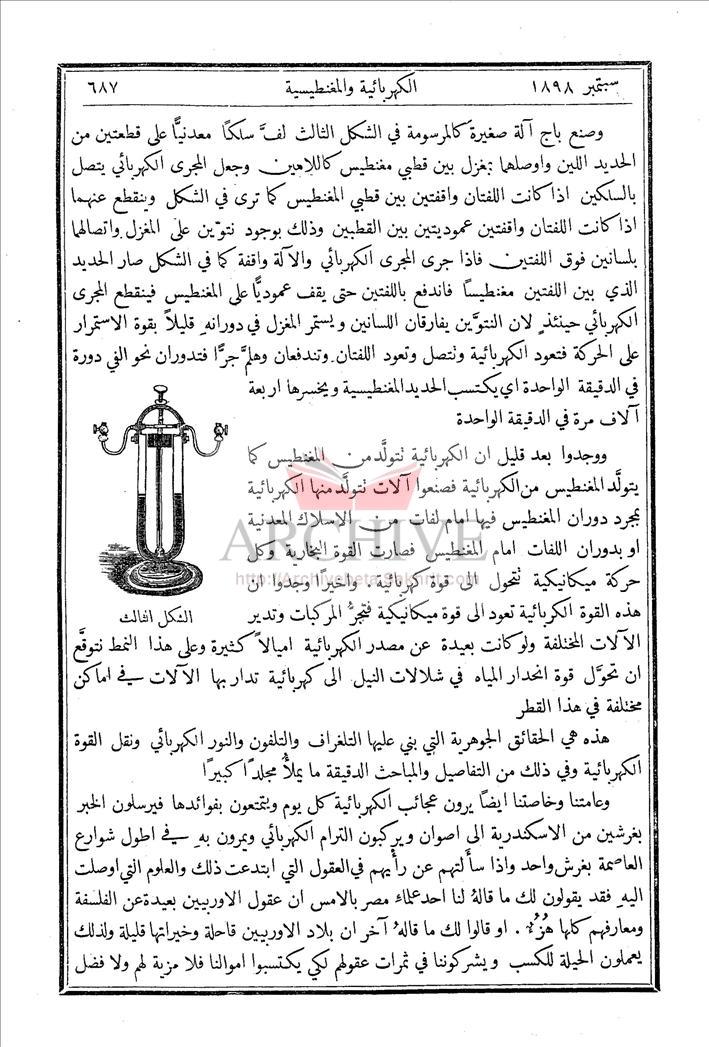 سبتمبر ١٨٩٨
الكهربائية والمغنطيسية
٦٨٧
وصنع باج آلة صغيرة كالمرسومة في الشكل الثالث لفَّ سلكًا معدنيًّا على قطعتين من
الحديد اللين واوصلهما بمغزل بين قطبي مغنطيس كاللاهين وجعل المجرى الكهربائي يتصل
بالسلكين اذا كانت اللفتان واقفتين بين قطبي المغنطيس كما ترى في الشكل وينقطع عنهما
اذا كانت اللفتان واقفتين عموديتين بين القطبين وذلك بوجود نتوّين على المغزل واتصالهما
بلسانين فوق اللفتين فاذا جرى المجرى الكهربائي والآلة واقفة كما في الشكل صار الحديد
الذي بين اللفتين مغنطيسًا فاندفع باللفتين حتى يقف عموديًّا على المغنطيس فينقطع المجرى
الكهربائي حينئذٍ لان النتوّين يفارقان اللسانين ويستمر المغزل في دورانهِ قليلاً بقوة الاستمرار
على الحركة فتعود الكهربائية وتتصل وتعود اللفتان وتندفعان وهلمَّ جرًّا فتدوران نحو الفي دورة
في الدقيقة الواحدة اي يكتسب الحديد المغنطيسية ويخسرها اربعة
آلاف مرة في الدقيقة الواحدة
ووجدوا بعد قليل ان الكهربائية تتولَّد من المغنطيس كما
يتولَّد المغنطيس من الكهربائية فصنعوا آلات تتولَّد منها الكهربائية
بمجرد دوران المغنطيس فيها امام لفات من الاسلاك المعدنية
او بدوران اللفات امام المغنطيس فصارت القوة البخارية وكل
حركة ميكانيكية تتحول الى قوة كهربائية واخيرًا وجدوا ان
هذه القوة الكربائية تعود الى قوة ميكانيكية فتجرُّ المركبات وتدير
الشكل الثالث
الآلات المختلفة ولو كانت بعيدة عن مصدر الكهربائية اميالاً كثيرة وعلى هذا النمط نتوقَّع
ان تحوَّل قوة انحدار المياه في شلالات النيل الى كهربائية تدار بها الآلات في اماكن
مختلفة في هذا القطر
هذه هي الحقائق الجوهرية التي بني عليها التلغراف والتلفون والنور الكهربائي ونقل القوة
الكهربائية وفي ذلك من التفاصيل والمباحث الدقيقة ما يملأُ مجلدًا كبيرًا
وعامتنا وخاصتنا ايضًا يرون عجائب الكهربائية كل يوم ويتمتعون بفوائدها فيرسلون الخبر
بغرشين من الاسكندرية الى اصوان ويركبون الترام الكهربائي ويمرون به في اطول شوارع
العاصمة بغرش واحد واذا سأَلتهم عن رأْيهم في العقول التي ابتدعت ذلك والعلوم التي اوصلت
اليهِ فقد يقولون لك ما قالهُ لنا احد علماء مصر بالامس ان عقول الاوربيين بعيدة عن الفلسفة
ومعارفهم كلها هُزُوءٌ . او قالوا لك ما قالهُ آخر ان بلاد الاوربيين قاحلة وخيراتها قليلة ولذلك
يعملون الحيلة للكسب ويشركوننا في ثمرات عقولهم لكي يكتسبوا اموالنا فلا مزية لهم ولا فضل
ARCHIVE